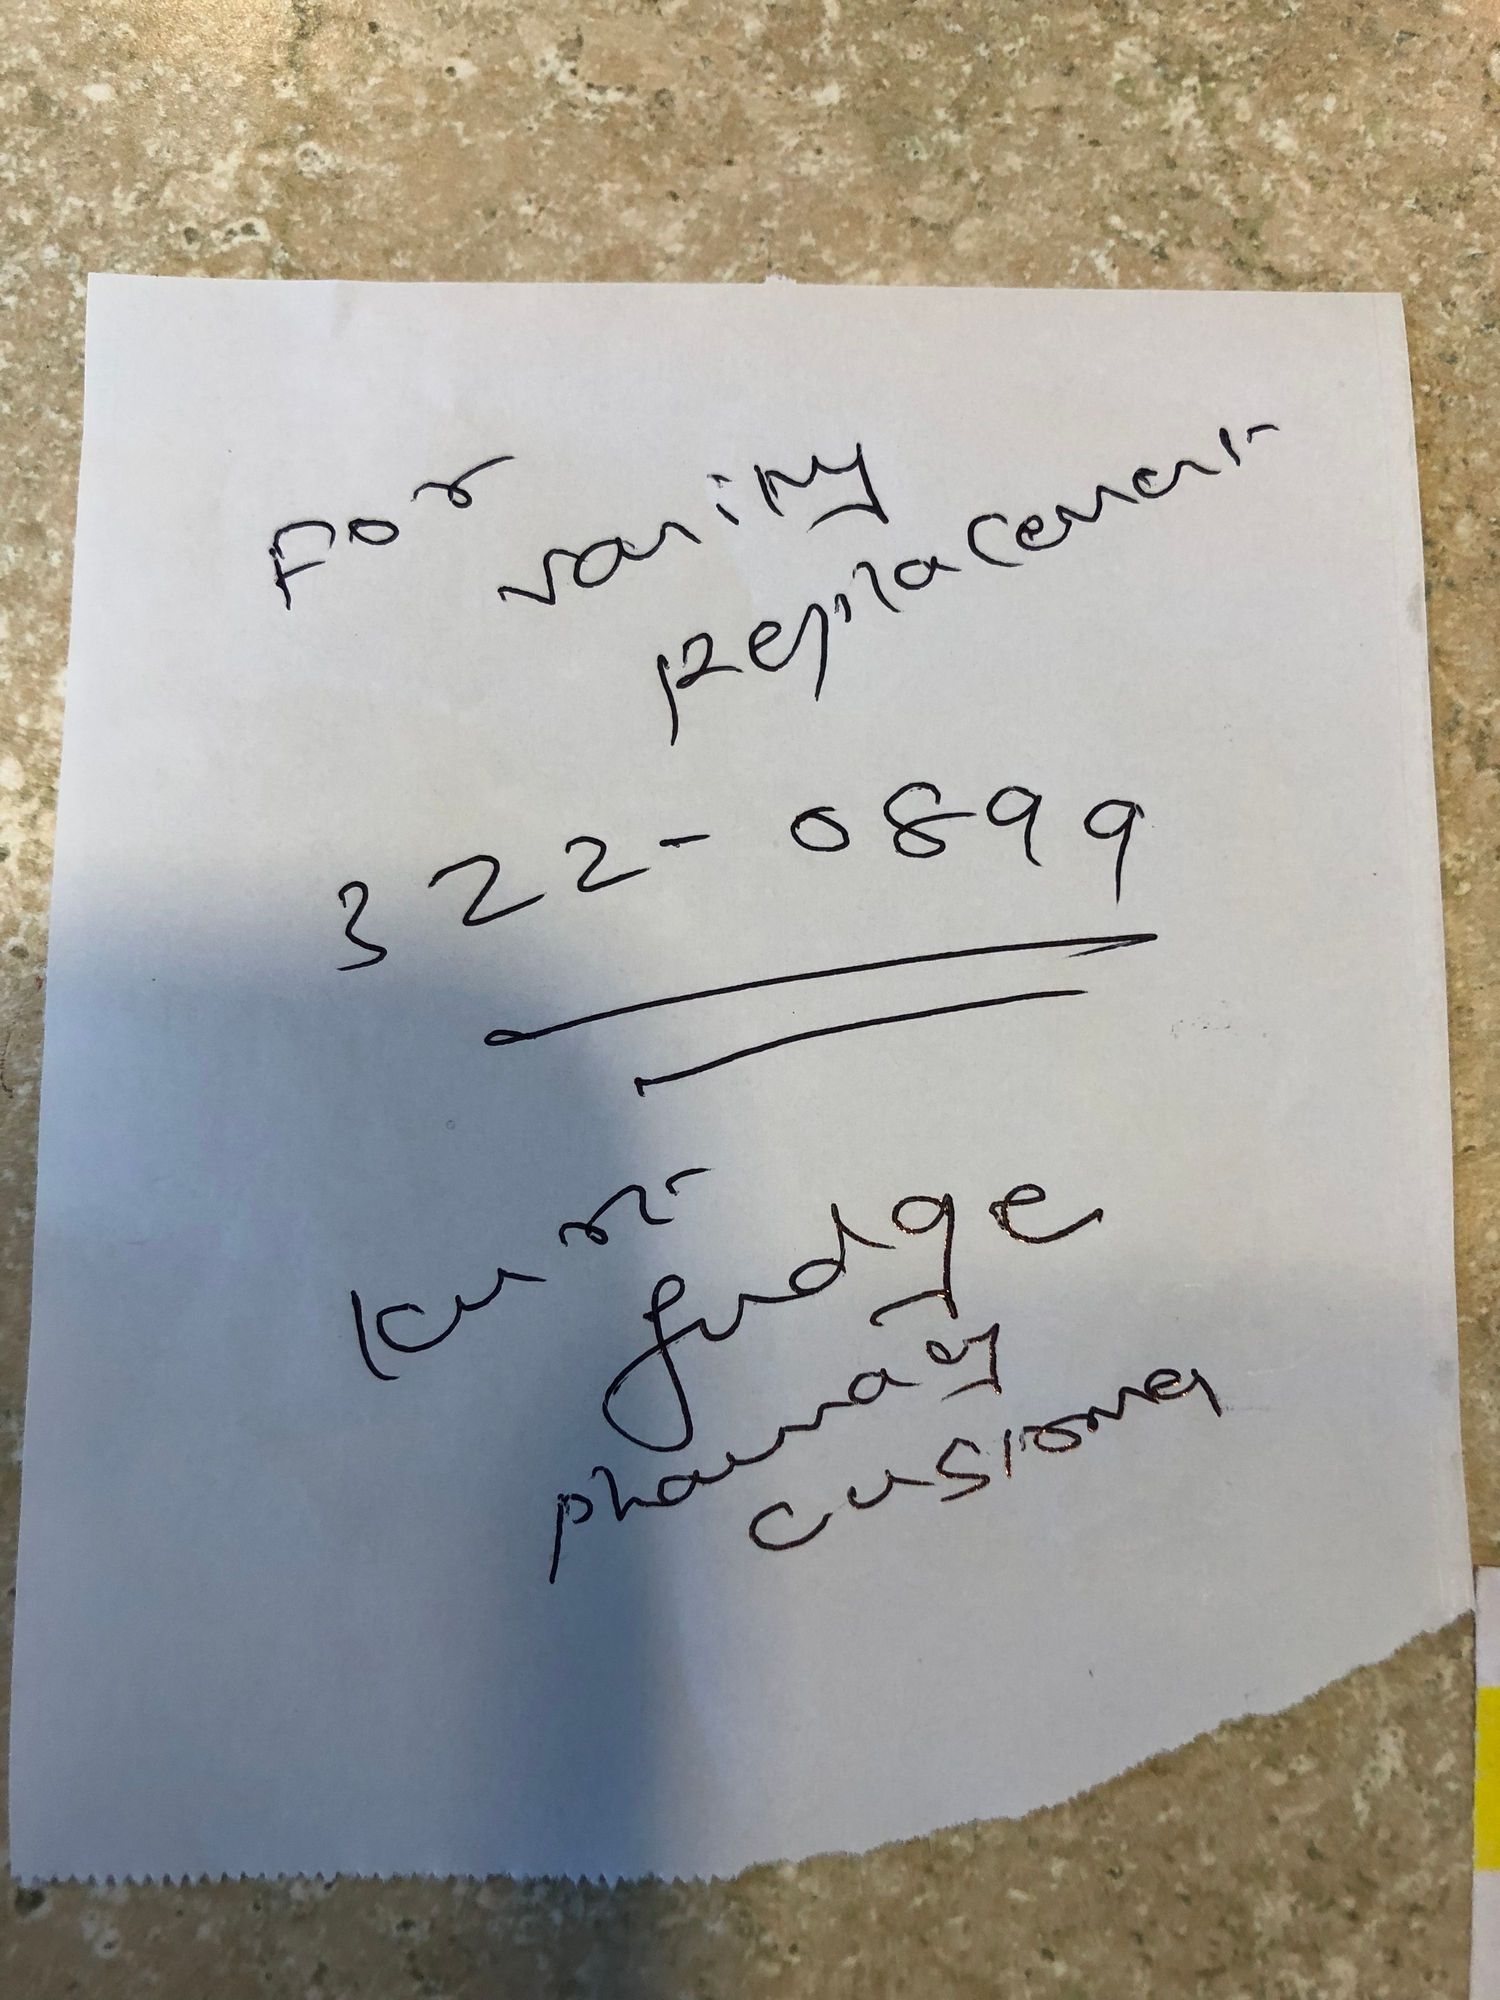 For vaniny
Replacement
322-0899
Kurt
Judge
pharmacy
customer